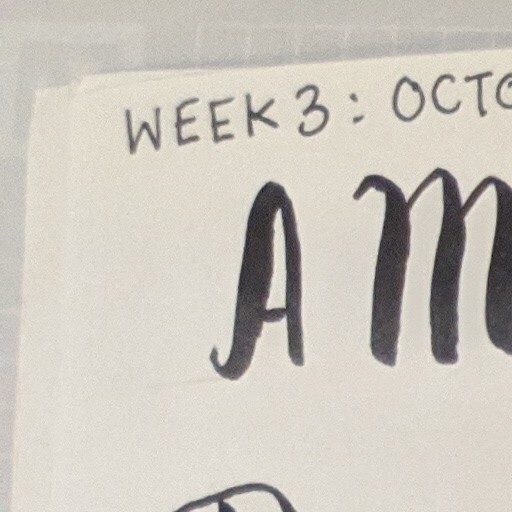 WEEK 3: OCTO
A M